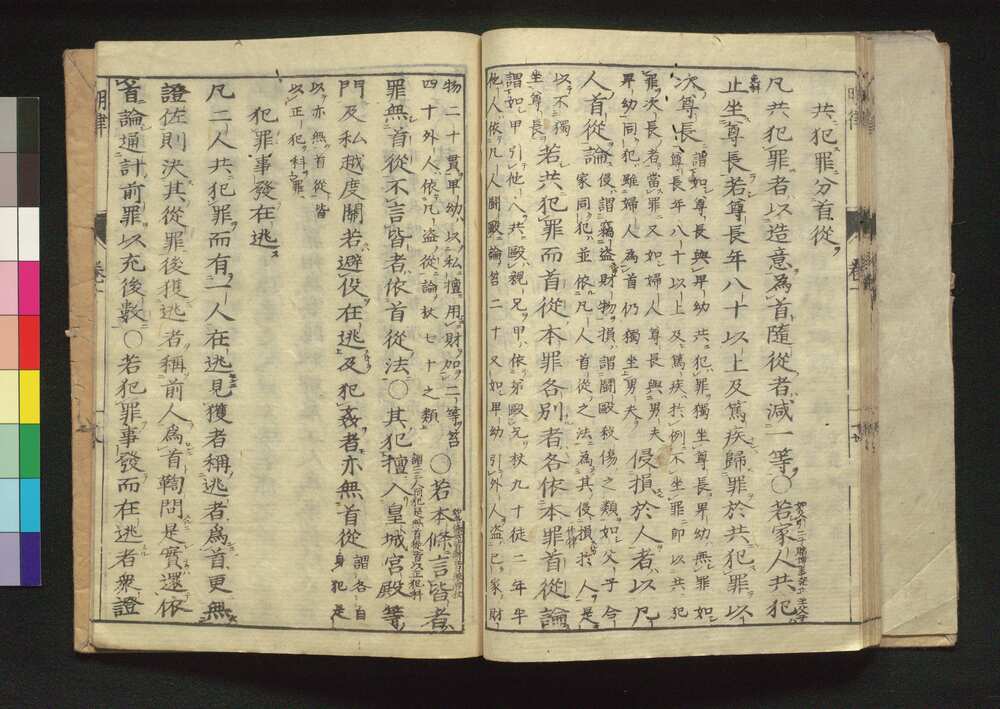 共犯罪分首從
凡共犯罪者以造意為首隨從者減一等○若家人共犯
止坐尊長若尊長年八十以上及篤疾歸罪於共犯罪以
次尊長
謂如尊長與卑幼共犯罪獨坐尊長卑幼無罪如
尊長年八十以上及篤疾於例不坐罪即以共犯
罪次長者當罪又如婦人尊長與男夫
卑幼同犯雖婦人為首仍獨坐男夫
侵損於人者以凡
人首從論
侵謂竊盜財物損謂鬪毆殺傷之類如父子合
家同犯並依凡人首從之法為其侵損於人是
以不獨
坐尊長
若共犯罪而首從本罪各別者各依本罪首從論
謂如甲引他人共毆親兄甲依弟毆兄杖九十徒二年半
他人依凡人鬪毆論笞二十又如卑幼引外人盜己家財
物二十貫卑幼以私擅用財加二等笞
四十外人依凡盜從論杖七十之類
○若本條言皆者
罪無首從不言皆者依首從法○其犯擅入皇城宮殿等
門及私越度關若避役在逃及犯姦者亦無首從
謂各自
身犯是
以亦無首從皆
以正犯科罪
犯罪事發在逃
凡二人共犯罪而有一人在逃見獲者稱逃者為首更無
證佐則決其從罪後獲逃者稱前人為首鞫問是實還依
首論通計前罪以充後數○若犯罪事發而在逃者衆證
明律
卷一